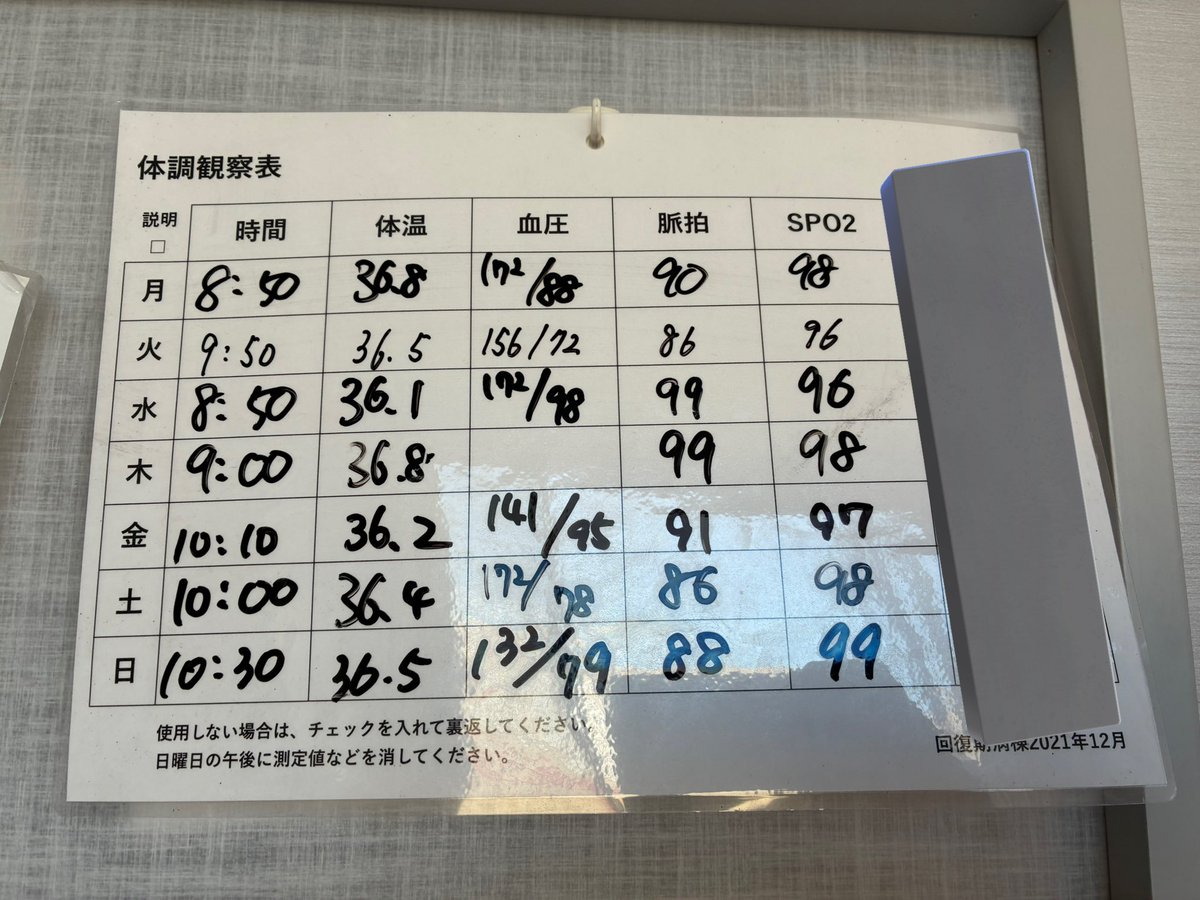 体調観察表
説明 □ 時間 体温 血圧 脈拍 SPO2
月 8:50 36.8 172/88 90 98
火 9:50 36.5 156/72 86 96
水 8:50 36.1 172/98 99 96
木 9:00 36.8 99 98
金 10:10 36.2 141/95 91 97
土 10:00 36.4 172/78 86 98
日 10:30 36.5 132/79 88 99
使用しない場合は、チェックを入れて裏返してください。
日曜日の午後に測定値などを消してください。
回復期病棟2021年12月